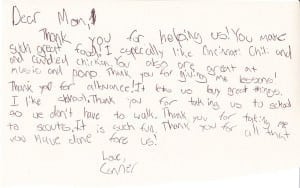 Dear Mom,
Thank you for helping us! You make
such great food! I especially like Cincinati Chili and
and candied chicken. You also are great at
music and piano. Thank you for giving me lessons!
Thank you for allowance! It lets us buy great things.
I like school. Thank you for taking us to school
so we don't have to walk. Thank you for taking me
to scouts. It is such fun. Thank you for all that
you have done fore us!
Love,
Conner